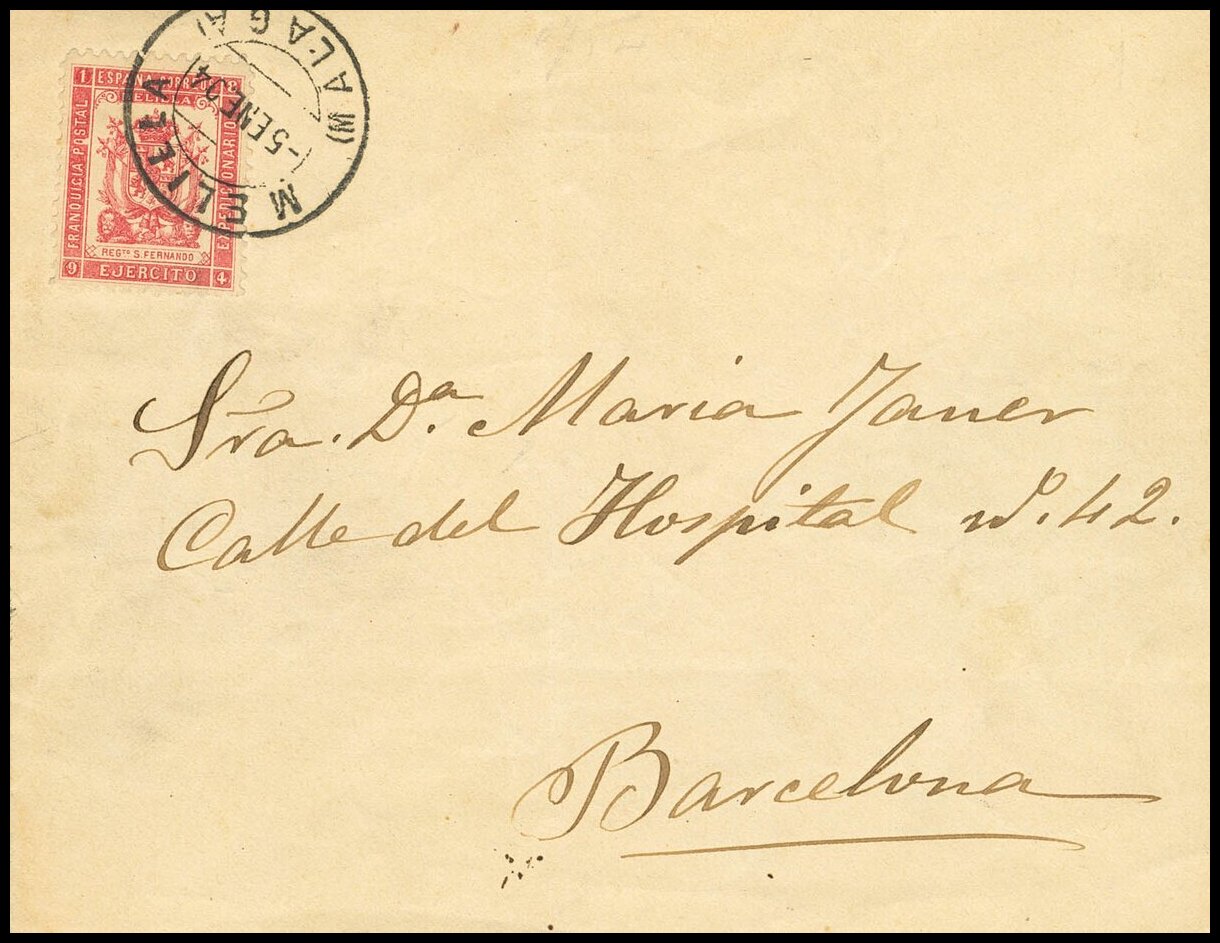 1 ESPAÑA CORREOS 8
MELILLA
FRANQUICIA POSTAL
EXPEDICIONARIO
REGTO S. FERNANDO
9 EJERCITO 4
MELILLA
(MALAGA)
-5 ENE 04
Sra. Da. Maria Janer
Calle del Hospital no. 42.
Barcelona